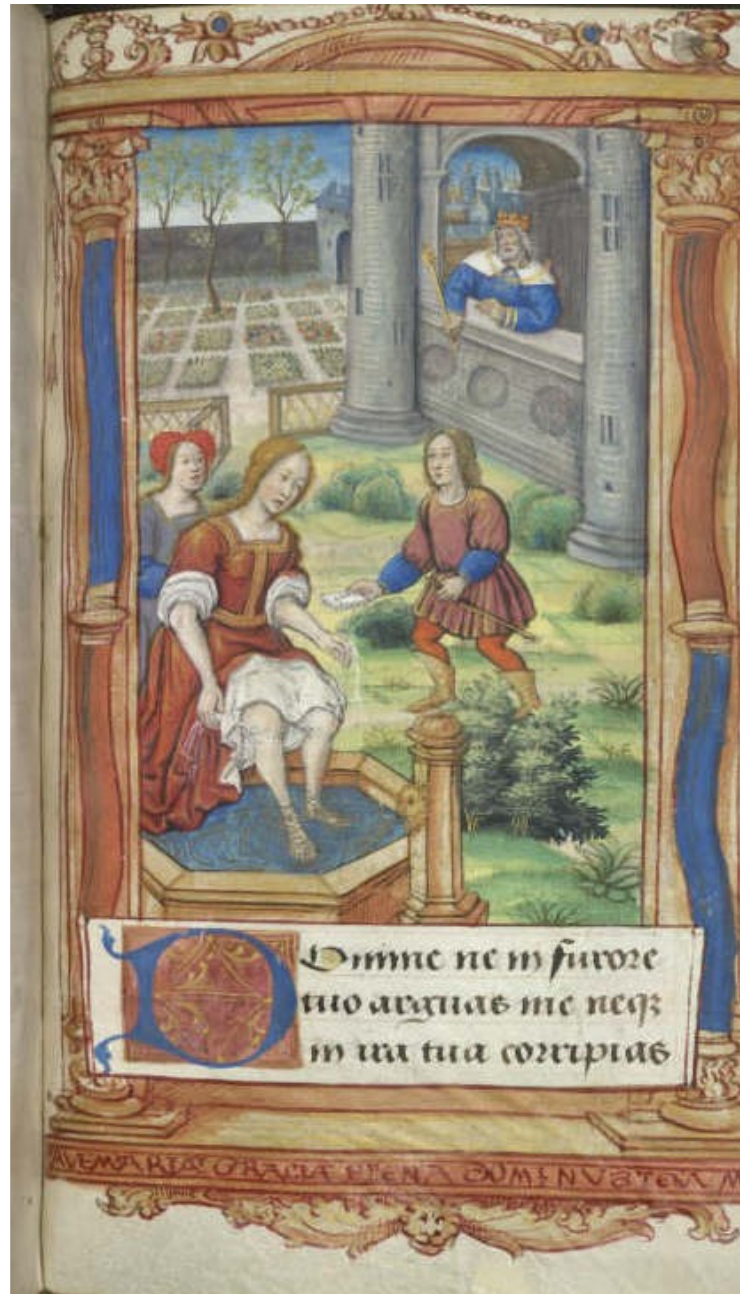 Domine ne in furore
tuo arguas me neqꝫ
in ira tua corripias
AVE MARIA GRACIA PLENA DOMINVS TECVM